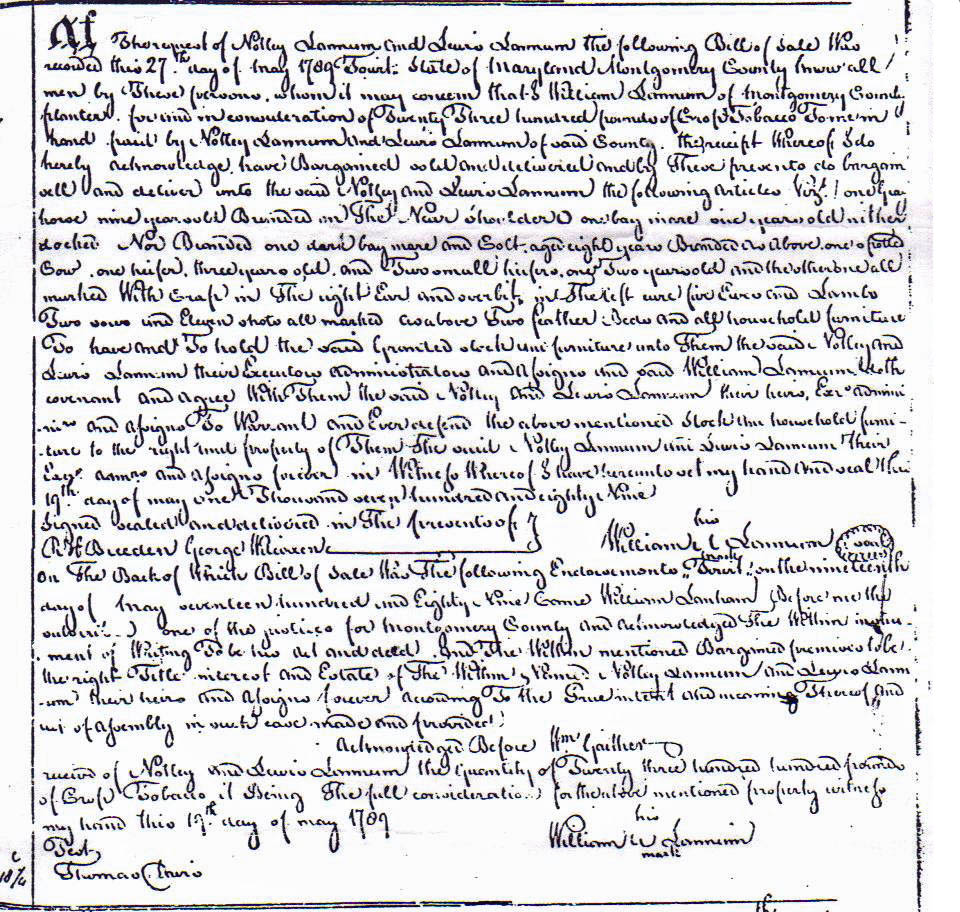 At The request of Notley Lannum and Lewis Lannum the following Bill of Sale Was
recorded this 27.th day of May 1789 Towit: State of Maryland Montgomery County Know all
men by These persons, whom it may concern that I William Lannum of Montgomery County
planter, for and in consideration of Twenty Three hundred pounds of Crop Tobacco To me in
hand paid by Notley Lannum and Lewis Lannum of said County, the receipt Whereof I do
hereby acknowledge have Bargained sold and delivered and by These presents do bargain
sell and deliver unto the said Notley and Lewis Lannum the following Articles Viz.t one gray
horse nine years old Branded on The Near Shoulder one bay mare one years old neither
docked Nor Branded one dark bay mare and Colt aged eight years Branded as Above, one spotted
Cow, one heifer, three years old, and Two small heifers, one Two years old and the other one all
marked With Crap in The right Ear and overbit in The left ear five Ewes and Lambs
Two sows and Eleven shots all marked as above Two feather Beds and all household furniture
To have and To hold the said Granted stock and furniture unto Them the said Notley and
Lewis Lannum their Executors Administrators and Assigns and said William Lannum doth
covenant and Agree With Them the said Notley and Lewis Lannum their heirs, Exrs admini
and Assigns To Warrant and Ever defend the above mentioned Stock and household furni-
ture to the right and property of Them The said Notley Lannum and Lewis Lannum their
Exrs admrs and Assigns forever in Witness Whereof I have hereunto set my hand and seal this
19th day of may one Thousand seven hundred and eighty Nine
Signed sealed and delivered in The presents of }
his
Breeden George William Lannum seal
mark
On The Back of Which Bill of Sale Was The following Endorsements "Towit" on the nineteenth
day of May seventeen hundred and Eighty Nine Came William Lanham Before me the
one of the justices for Montgomery County and Acknowledged The Within instru-
ment of Writing To be his act and deed and The Within mentioned Bargained premises to be
the right Title interest and Estate of The Within Named Notley Lannum and Lewis Lann
-um their heirs and Assigns forever According To the True intent and meaning Thereof and
act of Assembly in such case made and provided
Acknowledged Before Wm Gaither
received of Notley and Lewis Lannum the Quantity of Twenty three hundred hundred pounds
of Crop Tobacco it Being The full consideration for the above mentioned property witness
my hand this 19th day of may 1789
his
Test William Lannum
mark
Thomas